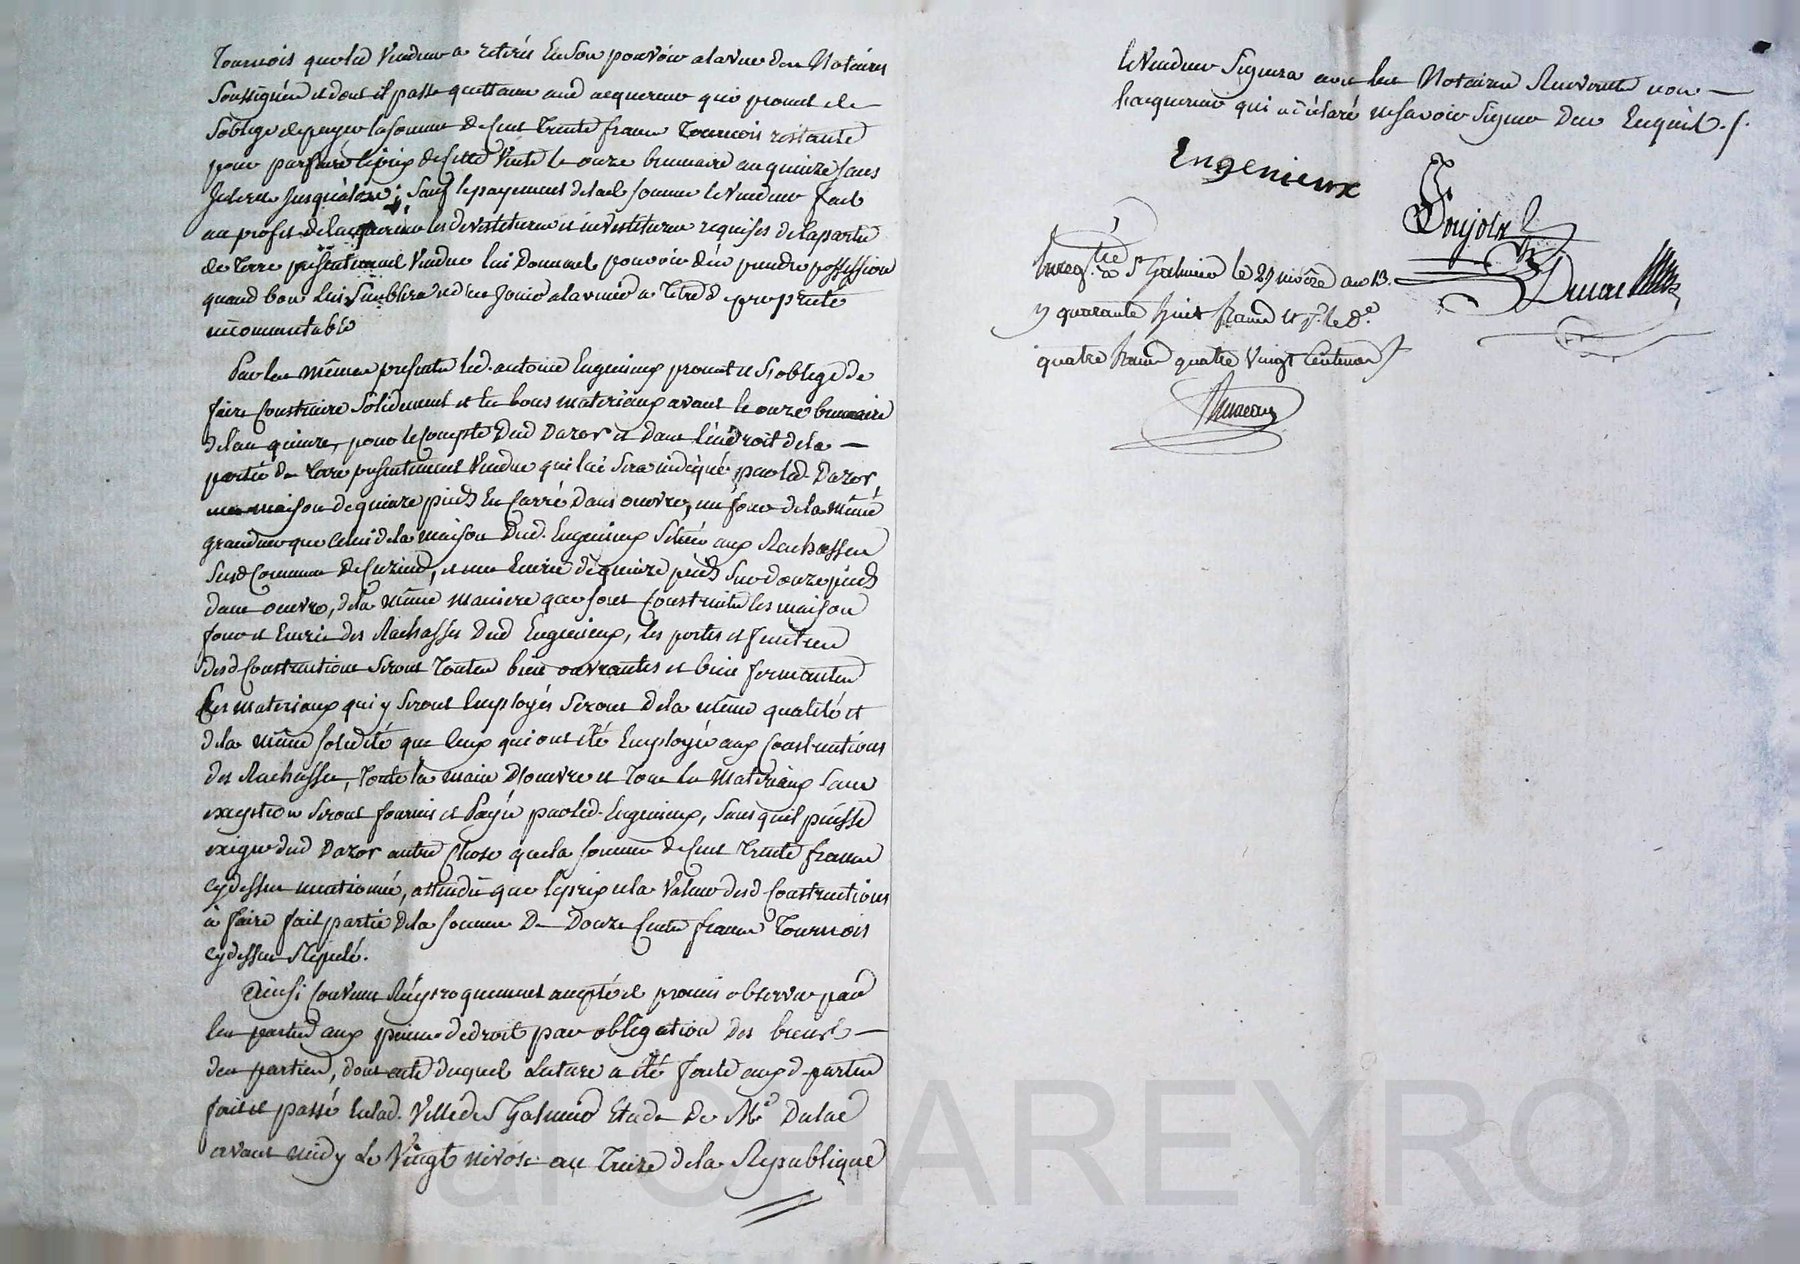 Tournois que led Vendeur a retirés En Son pouvoir a la vue des Notaires
Soussignés et dont il passe quittance aud acquereur qui promet et
S'oblige de payer la Somme de Cent Trente francs Tournois restante
pour parfaire le prix de Cette Vente le onze brumaire an quinze Sans
Interets Jusqu'alors; Sauf le payement de lad Somme le Vendeur fait
au profit de lacquereur les devestitures et investitures requises de la partie
de Terre présentement Vendue lui Donnant pouvoir d'en prendre possession
quand bon lui Semblera et d'en Jouir a lavenir a Titre de propriété
incommutable
Par les mêmes presentes led. antoine Engenieux promet et S'oblige de
faire Construire Solidement et En bons materiaux avant le onze brumaire
de lan quinze, pour le Compte Dud Dazor et dans l'endroit de la
partie de Terre presentement Vendue qui lui Sera indiqué par led Dazor,
une maison de quinze pieds En Carré Dans ouvre, un four de la même
grandeur que Celui de la maison Dud. Engenieux Située aux Rachasses
Susd Commune De Cuzieu, et une Ecurie de quinze pieds Sur douze pieds
dans ouvre, de la même maniere que Sont Construites les maison
four et Ecurie des Rachasses Dud Engenieux, les portes et fenetres
desd Constructions Seront Toutes bien ouvrantes et bien fermantes
Les materiaux qui y Seront Employés Seront de la même qualité et
de la même Solidité que Ceux qui ont été Employés aux Constructions
des Rachasses, Toute la main D'oeuvre et Tous les Materiaux Sans
exception Seront fournis et Payés par led. Engenieux, Sans quil puisse
exiger dud Dazor autre Chose que la Somme de Cent Trente francs
cydessus mentionnée, attendu que le prix et la Valeur desd Constructions
à faire fait partie de la Somme De Douze Cents francs Tournois
cydessus Stipulée.
Ainsi Convenu Réciproquement accepté et promis observer par
les parties aux peines de droit par obligation des biens
des parties, dont acte duquel Lecture a été faite auxd. parties
fait et passé En lad. Ville de St Galmier Etude De Me Dulac
avant midy Le Vingt nivose an Treize de la Republique
le Vendeur Signera avec les Notaires Recevants non
Lacquereur qui a déclaré ne Savoir Signer De ce Enquis.
Engenieux
Poujol
Dulac
Enregistré à St Galmier le 29 nivose an 13.
quarante huit francs et
quatre francs quatre Vingt Centimes
Pascal CHAREYRON